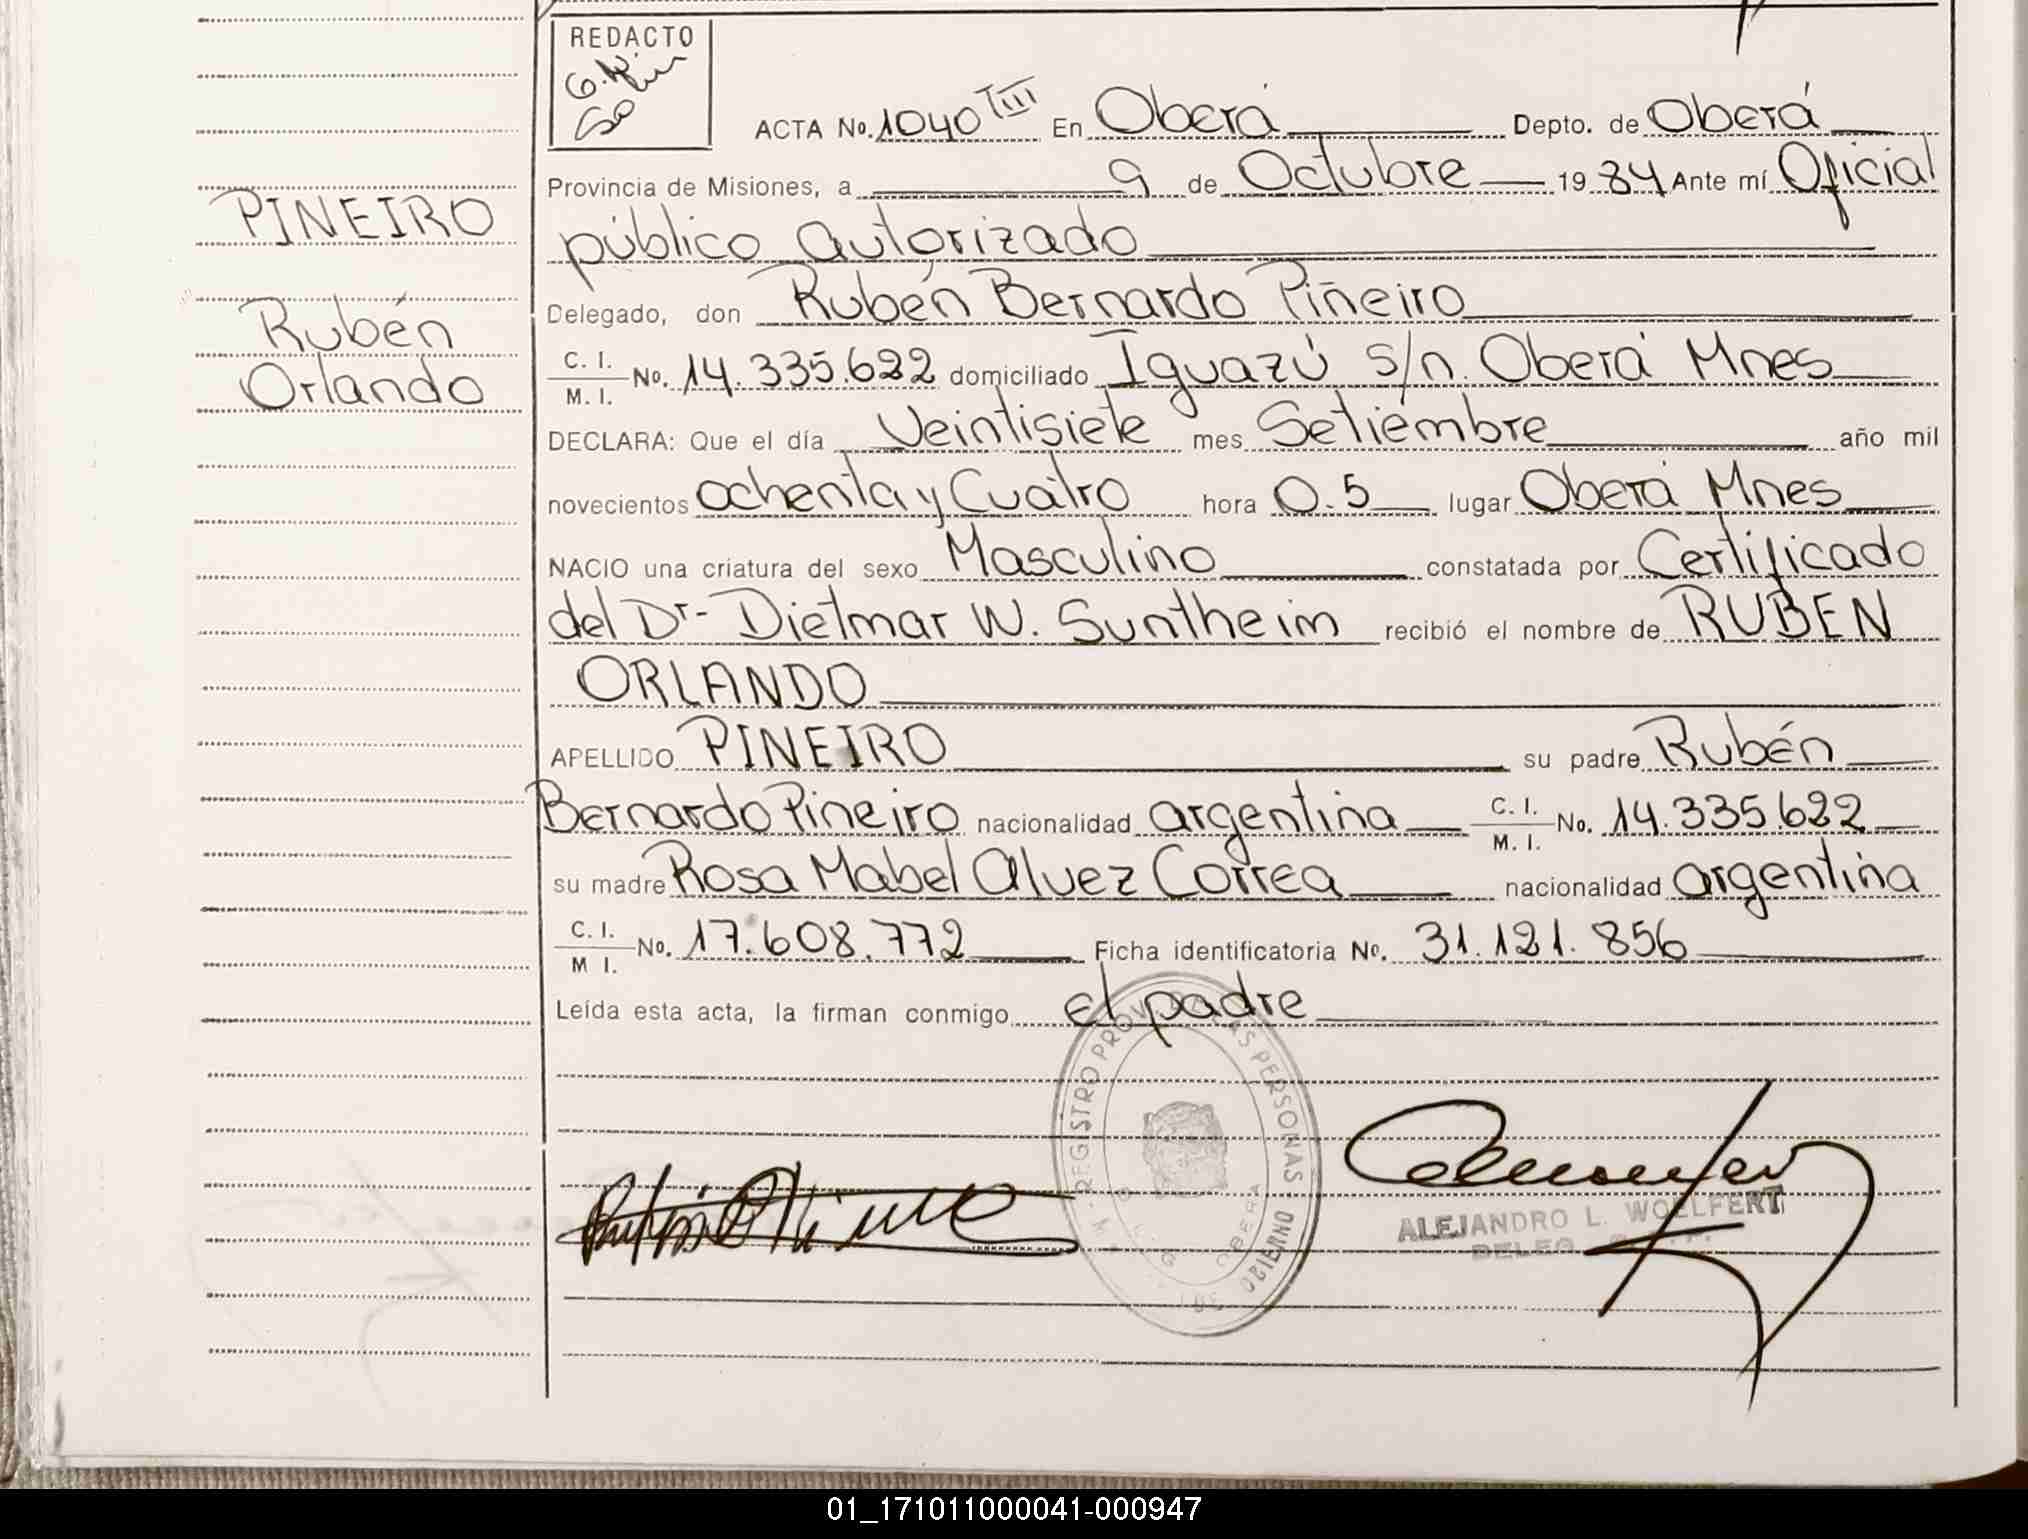 REDACTO
ACTA No. 1040 TIII En Oberá Depto. de Oberá
Provincia de Misiones, a 9 de Octubre 1984 Ante mí Oficial
público autorizado
Delegado, don Rubén Bernardo Piñeiro
C. I. / M. I. No. 14.335.622 domiciliado Iguazú s/n. Oberá Mnes
DECLARA: Que el día Veintisiete mes Setiembre año mil
novecientos ochenta y Cuatro hora 0.5 lugar Oberá Mnes
NACIO una criatura del sexo Masculino constatada por Certificado
del Dr- Dietmar W. Suntheim recibió el nombre de RUBEN
ORLANDO
APELLIDO PINEIRO su padre Rubén
Bernardo Pineiro nacionalidad argentina C. I. / M. I. No. 14.335.622
su madre Rosa Mabel Alvez Correa nacionalidad argentina
C. I. / M I. No. 17.608.772 Ficha identificatoria No. 31.121.856
Leída esta acta, la firman conmigo el padre
PINEIRO
Rubén
Orlando
REGISTRO PROV. DE LAS PERSONAS
OBERA
ALEJANDRO L. WOELFERT
DELEG.
01_171011000041-000947